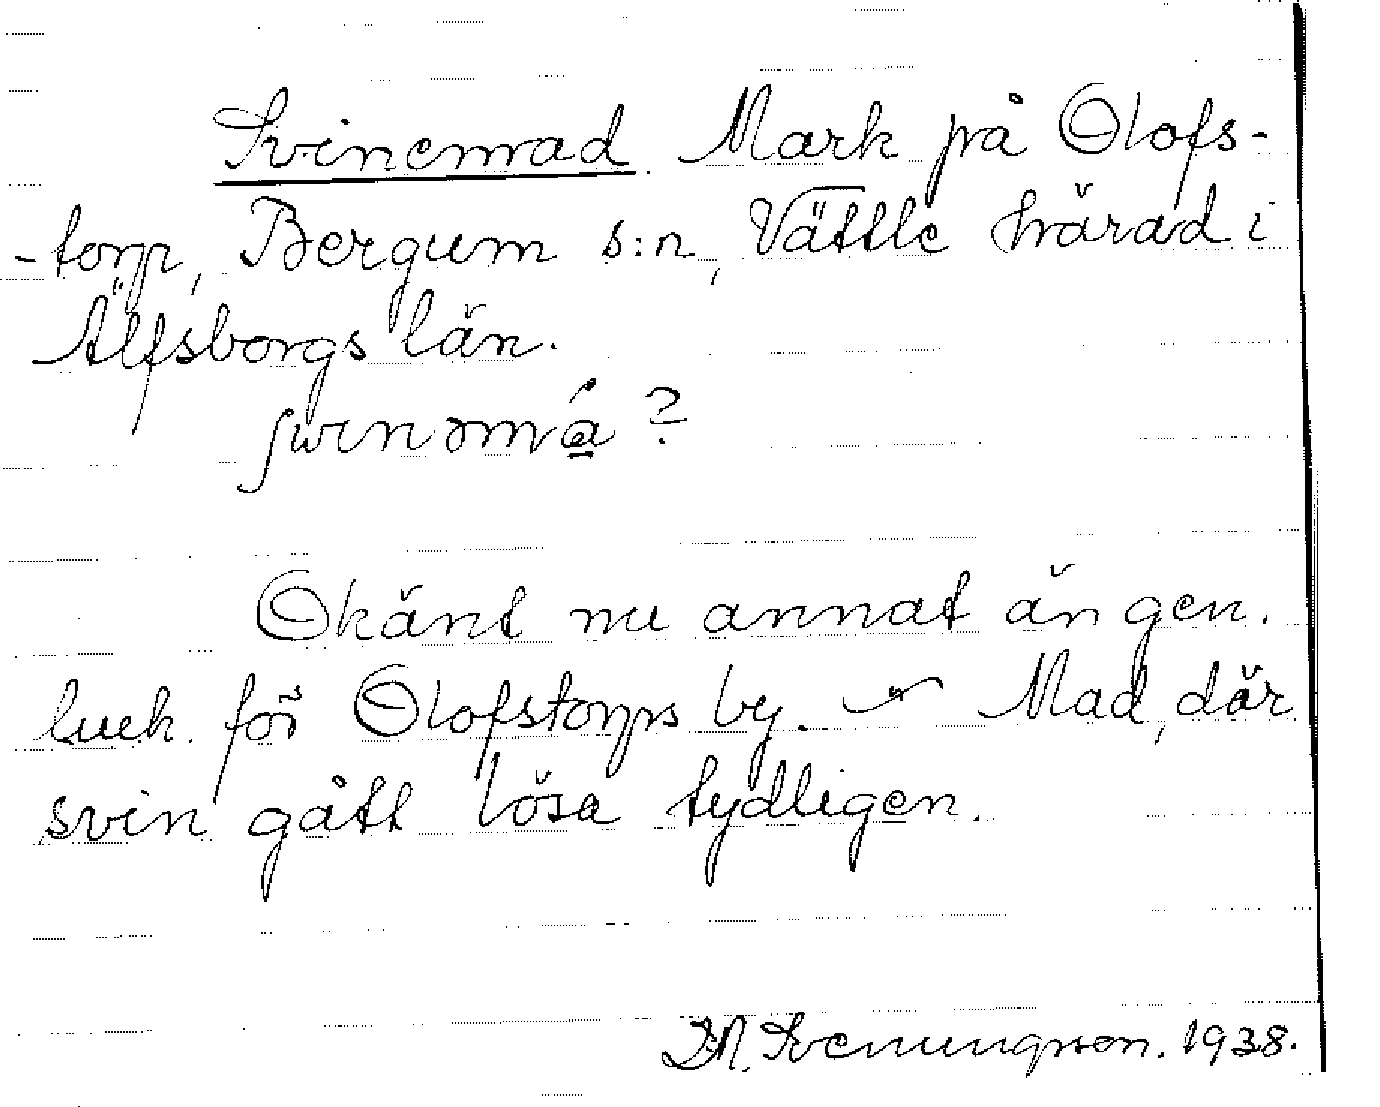 Svinemad. Mark på Olofs-
-torp, Bergum s:n, Vättle härad i
Älfsborgs län.
ʃwinəmá?
Okänt nu annat än gen.
luck för Olofstorps by. Mad, där
svin gått lösa tydligen.
D.N. Svenungsson. 1938.